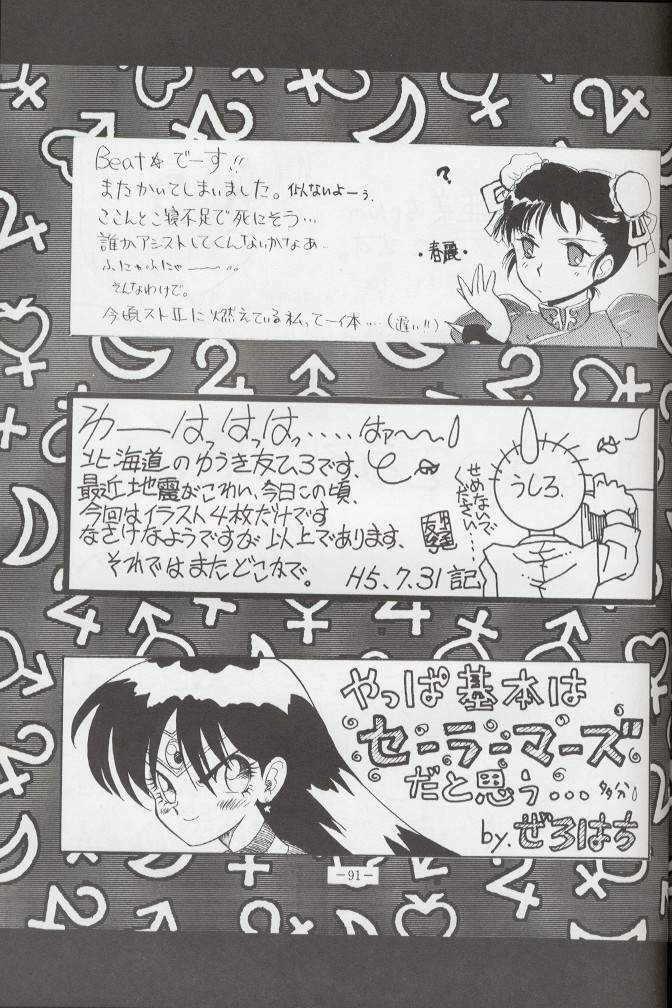 Beat☆でーす!!
またかいてしまいました。似んないよーぅ.
ここんとこ寝不足で死にそう…
誰かアシストしてくんないかなあ..
ふにゃふにゃ〜〜…
そんなわけで。
今頃ストⅡに燃えている私って一体……(遅い!!)
?
・春麗・
わーーはっはっはっ・・・・はァ〜〜!
北海道のゆうき友ひろです、
最近地震がこわい、今日この頃、
今回はイラスト4枚だけです
なさけなようですが以上であります、
それではまたどこかで。 H5.7.31記
せめないで
ください……
うしろ.
やっぱ基本は
セーラーマーズ
だと思う... タタ分
by.ぜろはち
−91−